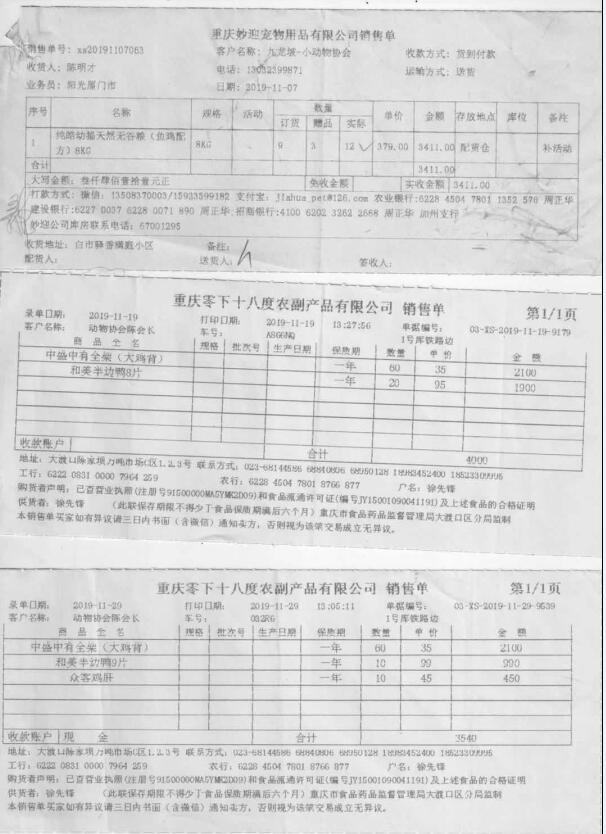 重庆妙迎宠物用品有限公司销售单
销售单号: xs20191107063 客户名称: 九龙坡-小动物协会 收款方式: 货到付款
收货人: 陈明才 电话: 13032399871 运输方式: 送货
业务员: 阳光厦门市 日期: 2019-11-07
序号 名称 规格 活动 数量 单价 金额 存放地点 库位 备注
订货 赠品 实际
1 纯皓幼猫天然无谷粮（鱼鸡配方）8KG 8KG 9 3 12 379.00 3411.00 配货仓 补活动
合计 3411.00
大写金额: 叁仟肆佰壹拾壹元正 免收金额 实收金额 3411.00
打款方式: 微信: 13508370003/15923599182 支付宝: jiahua_pet@126.com 农业银行:6228 4504 7801 1352 576 周正华
建设银行:6227 0037 6228 0071 890 周正华:招商银行:4100 6202 3262 2668 周正华 加州支行
妙迎公司库房联系电话: 67001295
收货地址: 白市驿香璃庭小区 备注:
配货人: 送货人: 签收人:
重庆零下十八度农副产品有限公司 销售单 第1/1页
录单日期: 2019-11-19 打印日期: 2019-11-19 13:27:56 单据编号: 03-XS-2019-11-19-9179
客户名称: 动物协会陈会长 车号: A866NQ 1号库铁路边
商品全名 规格 批次号 生产日期 保质期 数量 单价 金额
中盛中有全架（大鸡背） 一年 60 35 2100
和美半边鸭8片 一年 20 95 1900
收款账户 合计 4000
地址: 大渡口陈家坝万吨市场C区1.2.3号 联系方式: 023-68144586 68840806 68950128 18983452400 18523309995
工行: 6222 0831 0000 7964 259 农行: 6228 4504 7801 8766 877 户名: 徐先锋
购货者声明: 已查营业执照(注册号91500000MA5YMK2D09)和食品流通许可证(编号JY15001090041191)及上述食品的合格证明
供货者: 徐先锋 (此联保存期限不得少丁食品保质期满后六个月) 重庆市食品药品监督管理局大渡口区分局监制
本销售单买家如有异议请三日内书面（含微信）通知卖方，否则视为该笔交易成立无异议。
重庆零下十八度农副产品有限公司 销售单 第1/1页
录单日期: 2019-11-29 打印日期: 2019-11-29 13:05:11 单据编号: 03-XS-2019-11-29-9539
客户名称: 动物协会陈会长 车号: 032R6 1号库铁路边
商品全名 规格 批次号 生产日期 保质期 数量 单价 金额
中盛中有全架（大鸡背） 一年 60 35 2100
和美半边鸭9片 一年 10 99 990
众客鸡肝 一年 10 45 450
收款账户 现金 合计 3540
地址: 大渡口陈家坝万吨市场C区1.2.3号 联系方式: 023-68144586 68840806 68950128 18983452400 18523309995
工行: 6222 0831 0000 7964 259 农行: 6228 4504 7801 8766 877 户名: 徐先锋
购货者声明: 已查营业执照(注册号91500000MA5YMK2D09)和食品流通许可证(编号JY15001090041191)及上述食品的合格证明
供货者: 徐先锋 (此联保存期限不得少丁食品保质期满后六个月) 重庆市食品药品监督管理局大渡口区分局监制
本销售单买家如有异议请三日内书面（含微信）通知卖方，否则视为该笔交易成立无异议。